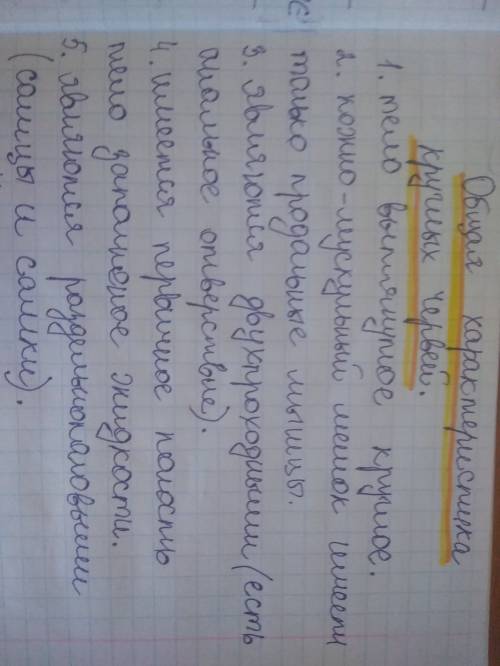 Общая характеристика
круглых червей.
1. тело вытянутое круглое.
2. кожно-мускульный мешок имеет
только продальные мышцы.
3. являются двухпроходными (есть
анальное отверствие).
4. имеется первичное полость
тело запалненое жидкости.
5. являются раздельнополовыми
(самцы и самки).